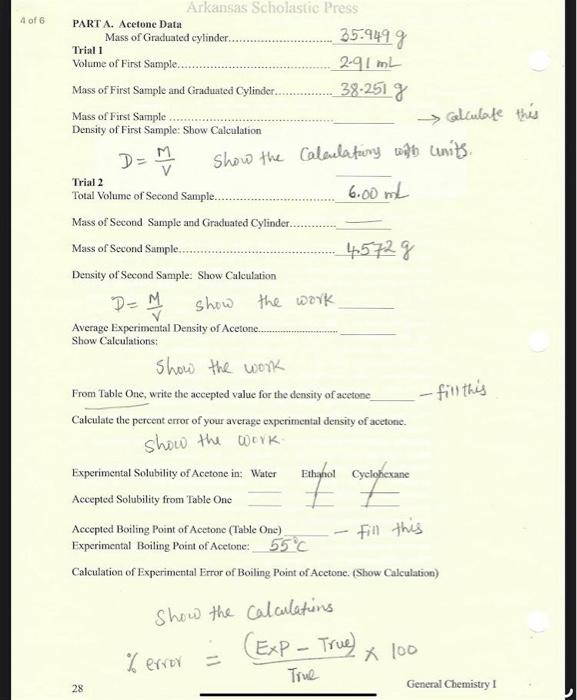 Arkansas Scholastic Press
4 of 6
PART A. Acetone Data
Mass of Graduated cylinder.................................. 35.949 g
Trial 1
Volume of First Sample.................................. 2.91 mL
Mass of First Sample and Graduated Cylinder.................. 38.251 g
Mass of First Sample .................................. → Calculate this
Density of First Sample: Show Calculation
D = M/V show the Calculations with units.
Trial 2
Total Volume of Second Sample.................................. 6.00 mL
Mass of Second Sample and Graduated Cylinder............... —
Mass of Second Sample.................................. 4.572 g
Density of Second Sample: Show Calculation
D = M/V show the work
Average Experimental Density of Acetone..........................
Show Calculations:
Show the work
From Table One, write the accepted value for the density of acetone_______ - fill this
Calculate the percent error of your average experimental density of acetone.
show the work.
Experimental Solubility of Acetone in: Water Ethanol Cyclohexane
Accepted Solubility from Table One
Accepted Boiling Point of Acetone (Table One) ______ - fill this
Experimental Boiling Point of Acetone: 55°C
Calculation of Experimental Error of Boiling Point of Acetone. (Show Calculation)
Show the Calculations
% error = (Exp - True)/True × 100
28 General Chemistry I